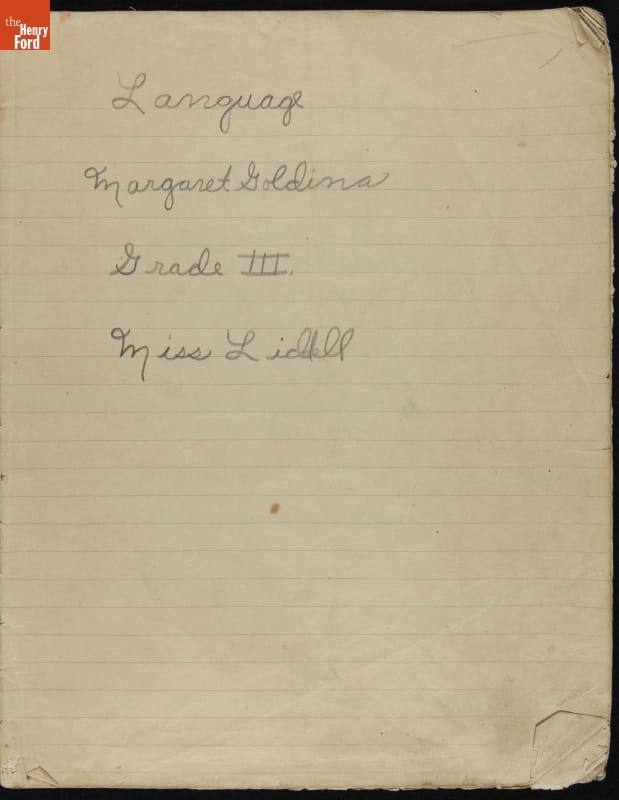 the
Henry
Ford
Language
Margaret Goldina
Grade III.
Miss Liddell